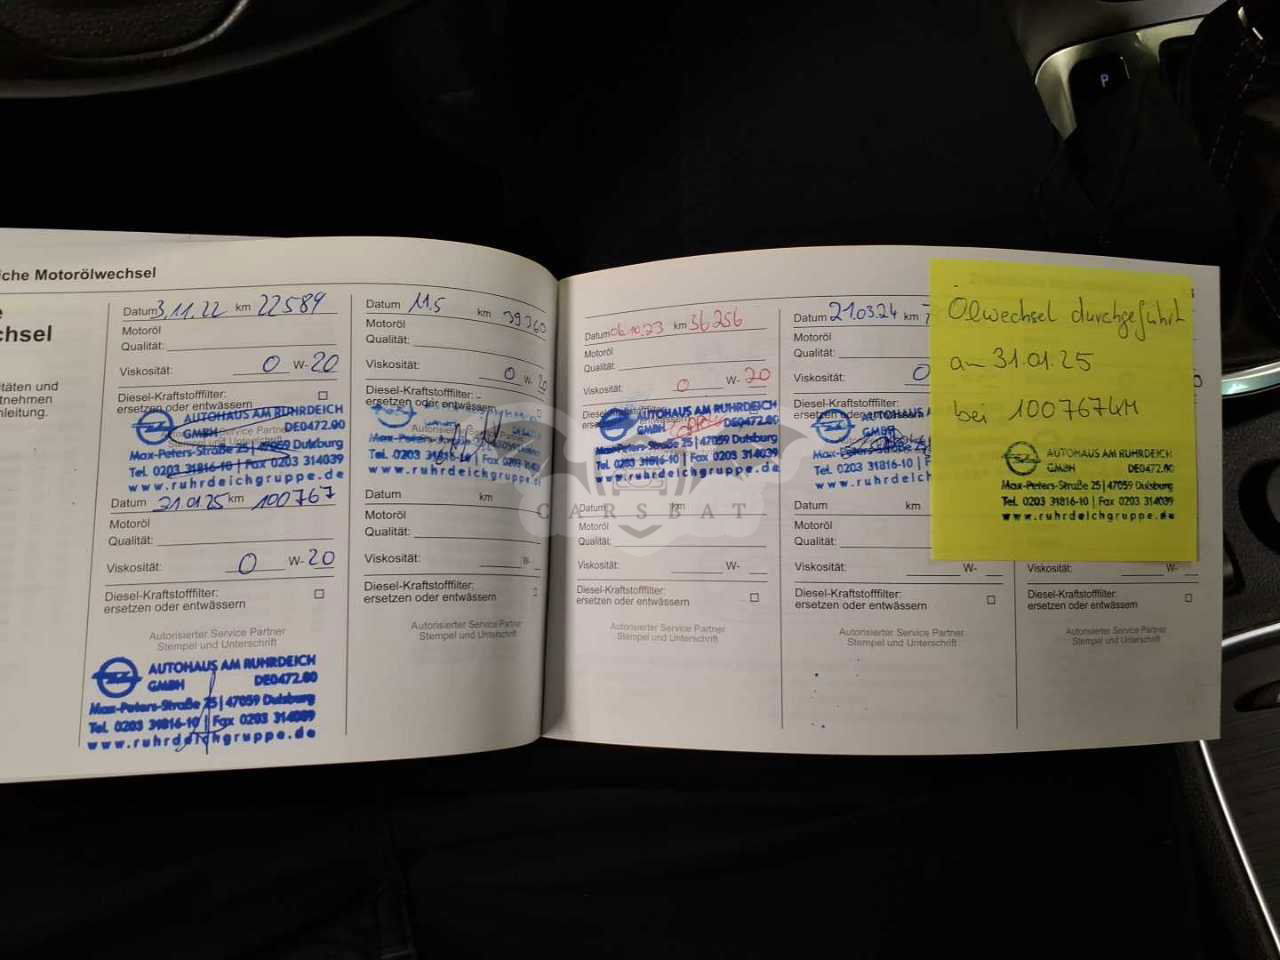 iche Motorölwechsel
e
chsel
itäten und
tnehmen
nleitung.
Datum 3.11.22 km 22589
Motoröl
Qualität:
Viskosität: 0 W-20
Diesel-Kraftstofffilter:
ersetzen oder entwässern
AUTOHAUS AM RUHRDEICH
GMBH DE0472.00
Max-Peters-Straße 25 | 47059 Duisburg
Tel. 0203 31816-10 | Fax 0203 314039
www.ruhrdeichgruppe.de
Datum 31.01.25 km 100767
Motoröl
Qualität:
Viskosität: 0 W-20
Diesel-Kraftstofffilter:
ersetzen oder entwässern
Autorisierter Service Partner
Stempel und Unterschrift
AUTOHAUS AM RUHRDEICH
GMBH DE0472.00
Max-Peters-Straße 25 | 47059 Duisburg
Tel. 0203 31816-10 | Fax 0203 314039
www.ruhrdeichgruppe.de
Datum 11.5 km 39360
Motoröl
Qualität:
Viskosität: 0 W-20
Diesel-Kraftstofffilter:
ersetzen oder entwässern
www.ruhrdeichgruppe.de
Datum km
Motoröl
Qualität:
Viskosität: W-
Diesel-Kraftstofffilter:
ersetzen oder entwässern
Autorisierter Service Partner
Stempel und Unterschrift
Datum 06.10.23 km 56256
Motoröl
Qualität:
Viskosität: 0 W-20
AUTOHAUS AM RUHRDEICH
GMBH DE0472.00
Max-Peters-Straße 25 | 47059 Duisburg
Tel. 0203 31816-10 | Fax 0203 314039
www.ruhrdeichgruppe.de
Datum km
Motoröl
Qualität:
Viskosität: W-
Diesel-Kraftstofffilter:
ersetzen oder entwässern
Autorisierter Service Partner
Stempel und Unterschrift
Datum 21.03.24 km 7
Motoröl
Qualität:
Viskosität: 0
Diesel-Kraftstofffilter:
ersetzen oder entwässern
AUTOHAUS AM
GMBH
Max-Peters-Straße
Tel. 0203 31816-10
www.ruhrdeich
Datum km
Motoröl
Qualität:
Viskosität: W-
Diesel-Kraftstofffilter:
ersetzen oder entwässern
Autorisierter Service Partner
Stempel und Unterschrift
Ölwechsel durchgeführt
am 31.01.25
bei 100767KM
AUTOHAUS AM RUHRDEICH
GMBH DE0472.00
Max-Peters-Straße 25 | 47059 Duisburg
Tel. 0203 31816-10 | Fax 0203 314039
www.ruhrdeichgruppe.de
Viskosität: W-
Diesel-Kraftstofffilter:
ersetzen oder entwässern
Autorisierter Service Partner
Stempel und Unterschrift
P
CARSBAT